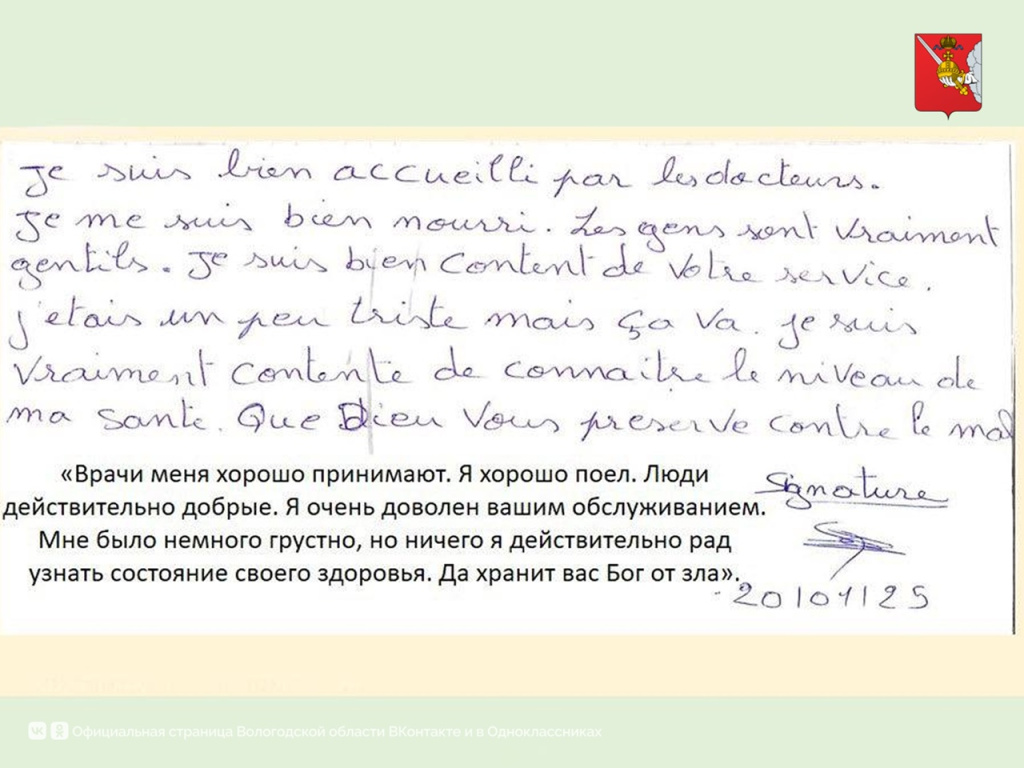 Je suis bien accueilli par les docteurs.
Je me suis bien nourri. Les gens sont vraiment
gentils. Je suis bien content de votre service.
j'etais un peu triste mais ça va. Je suis
vraiment contente de connaitre le niveau de
ma santé. Que Dieu vous preserve contre le mal
«Врачи меня хорошо принимают. Я хорошо поел. Люди
действительно добрые. Я очень доволен вашим обслуживанием.
Мне было немного грустно, но ничего я действительно рад
узнать состояние своего здоровья. Да хранит вас Бог от зла».
Signature
20/01/25
Официальная страница Вологодской области ВКонтакте и в Одноклассниках